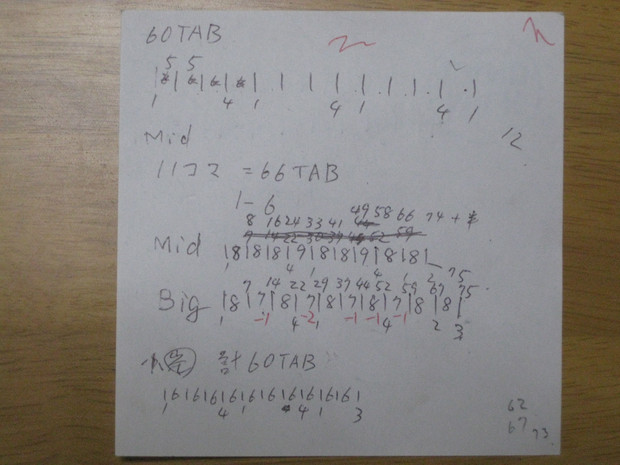 60TAB
5 5
1 4 1 4 1 4 1
Mid
12
11コマ = 66TAB
1-6
8 16 24 33 41 49 58 66 74 +
Mid |8|8|8|9|8|8|9|8|8|
1 4 1 4 1 2 75
7 14 22 29 37 44 52 59 67 75
Big |8|7|8|7|8|7|8|7|8|8|
1 -1 4 -2 1 -1 -1 4 -1 2 3
計60TAB
|6|6|6|6|6|6|6|6|6|6|
1 4 1 4 1 3
62
67 73